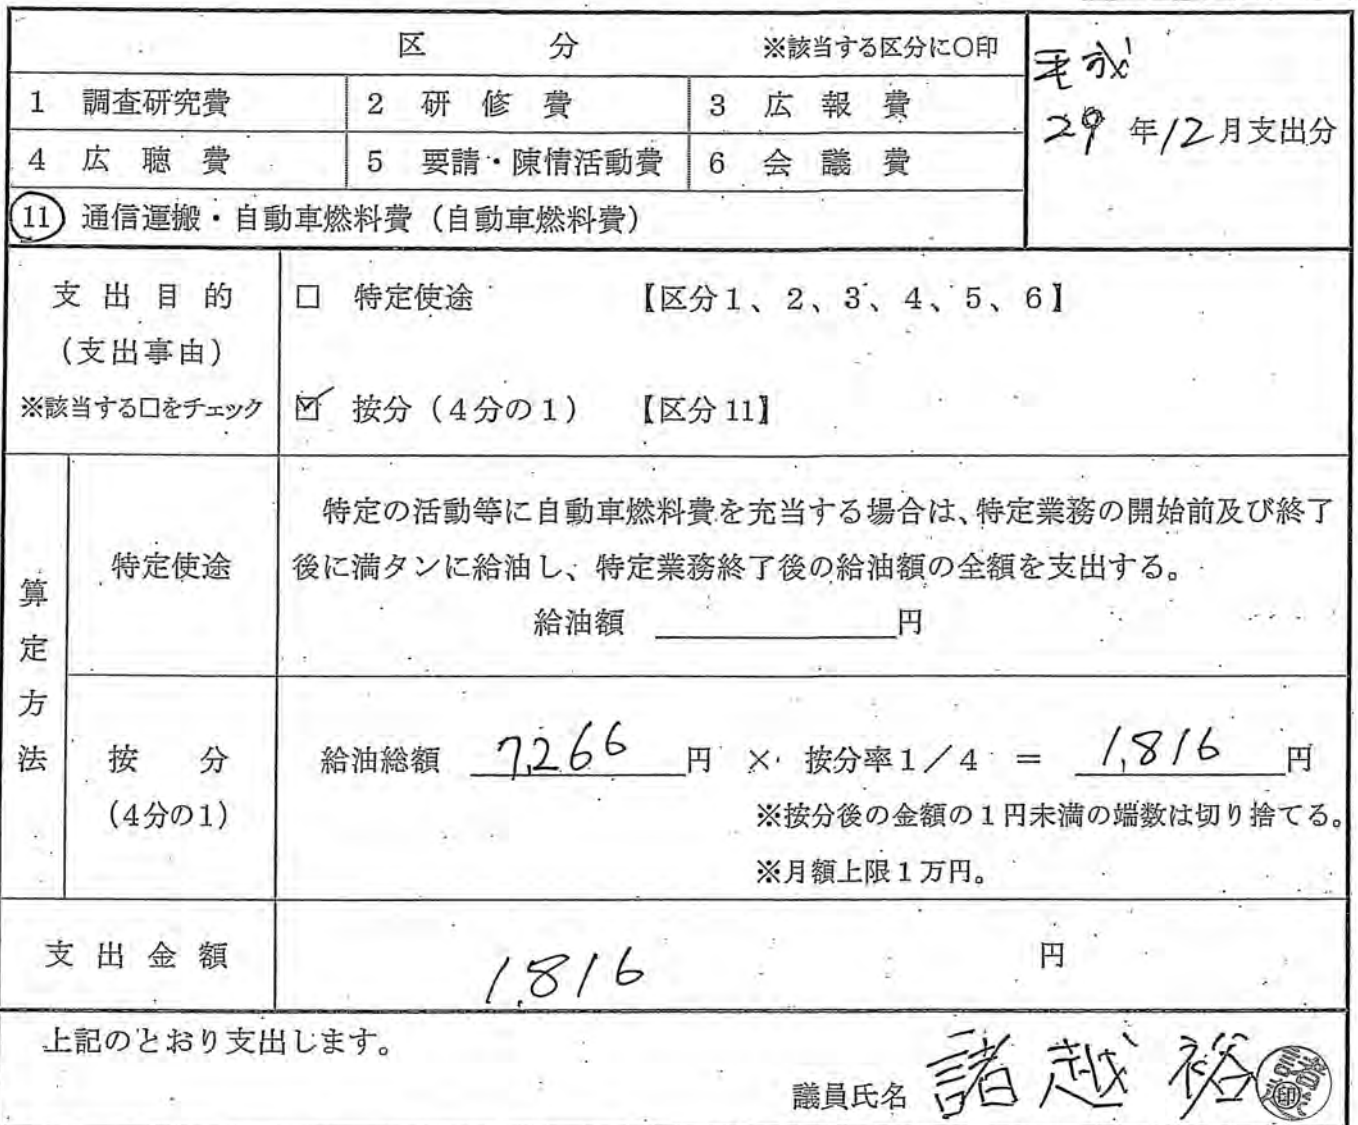 区 分 ※該当する区分に○印
平成
29年12月支出分
1 調査研究費 2 研修費 3 広報費
4 広聴費 5 要請・陳情活動費 6 会議費
11 通信運搬・自動車燃料費(自動車燃料費)
支出目的
(支出事由)
※該当する□をチェック
□ 特定使途 【区分1、2、3、4、5、6】
☑ 按分(4分の1) 【区分11】
算定方法
特定使途
特定の活動等に自動車燃料費を充当する場合は、特定業務の開始前及び終了
後に満タンに給油し、特定業務終了後の給油額の全額を支出する。
給油額 円
按分
(4分の1)
給油総額 7,266 円 × 按分率1/4 = 1,816 円
※按分後の金額の1円未満の端数は切り捨てる。
※月額上限1万円。
支出金額 1,816 円
上記のとおり支出します。
議員氏名 諸越 裕 印